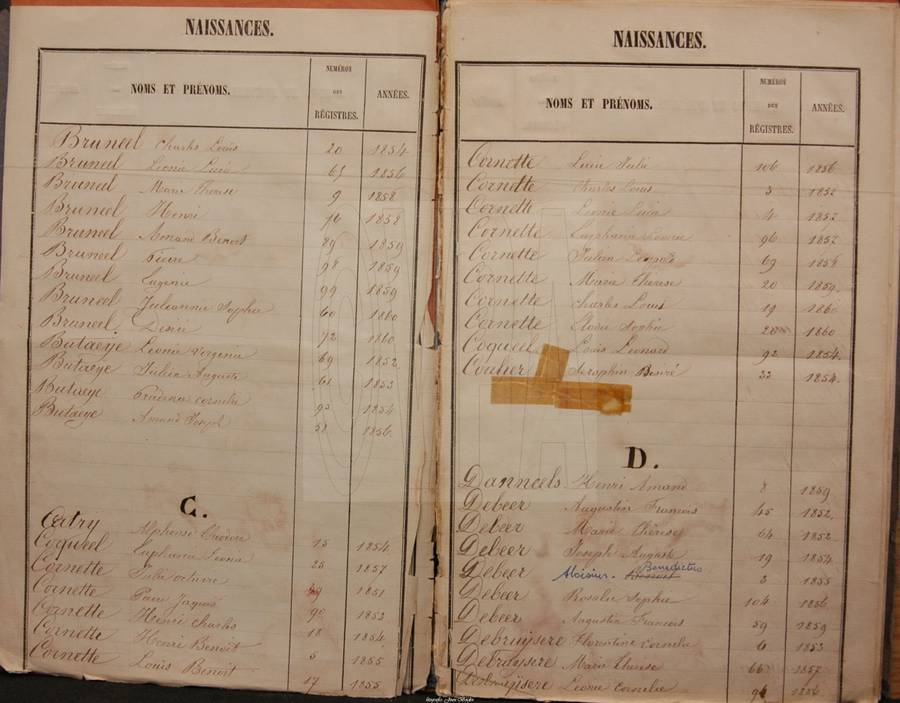 NAISSANCES.
NOMS ET PRÉNOMS. NUMÉROS DES RÉGISTRES. ANNÉES.
Bruneel Charles Louis 20 1854
Bruneel Léonie 65 1856
Bruneel Marie Therese 9 1858
Bruneel Henri 76 1858
Bruneel Amand Benoit 89 1859
Bruneel 98 1859
Bruneel Eugenie 99 1859
Bruneel Julianne Sophie 60 1860
Bruneel Désiré 72 1860
Butaeye Léonie Virginie 69 1852
Butaeye Julien Auguste 61 1853
Butaeye Prudence Cornelie 93 1854
Butaeye Amand Joseph 58 1856.
C.
Certry Alphonse 15 1854
Coqueel Euphanie Léonie 25 1857
Cornette Julie Octavie 1851
Cornette Jaques 90 1853
Cornette Henri Charles 18 1854
Cornette Henri Benoit 5 1855
Cornette Louis Benoit 17 1855
NAISSANCES.
NOMS ET PRÉNOMS. NUMÉROS DES RÉGISTRES. ANNÉES.
Cornette Lucie Julie 106 1856
Cornette Charles Louis 3 1852
Cornette Léonie 4 1852
Cornette 96 1857
Cornette Julien 69 1858
Cornette Marie Thérèse 20 1859.
Cornette Charles Louis 19 1860
Cornette Elodie Sophie 1860
Coqueel Louis Léonard 92 1854.
Coulier Seraphin Désiré 33 1854.
D.
Danneels Henri Amand 8 1859
Debeer Augustin Francois 45 1852.
Debeer Marie Thérèse 64 1852
Debeer Joseph Auguste 19 1854
Debeer Aloïsius. Benedictus 3 1855
Debeer Rosalie Sophie 104 1856
Debeer Augustin Francois 59 1859
Debruijsere Florentine Cornelie 6 1853
Debruijsere Marie Therese 66 1857
Debruijsere Léonie Cornelie 1856